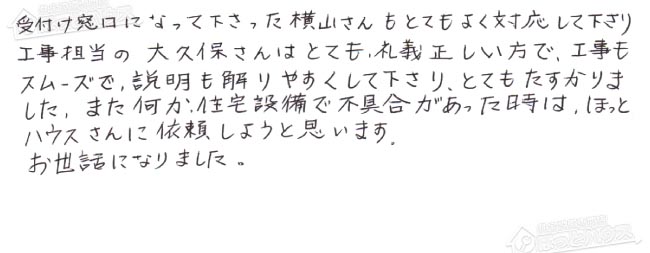 受付け窓口になって下さった横山さんもとてもよく対応して下さり
工事担当の 大久保さんはとても、礼義正しい方で、工事も
スムーズで、説明も解りやすくして下さり、とてもたすかりま
した。また何か、住宅設備で不具合があった時は、ほっと
ハウスさんに依頼しようと思います。
お世話になりました。
ほっとハウス